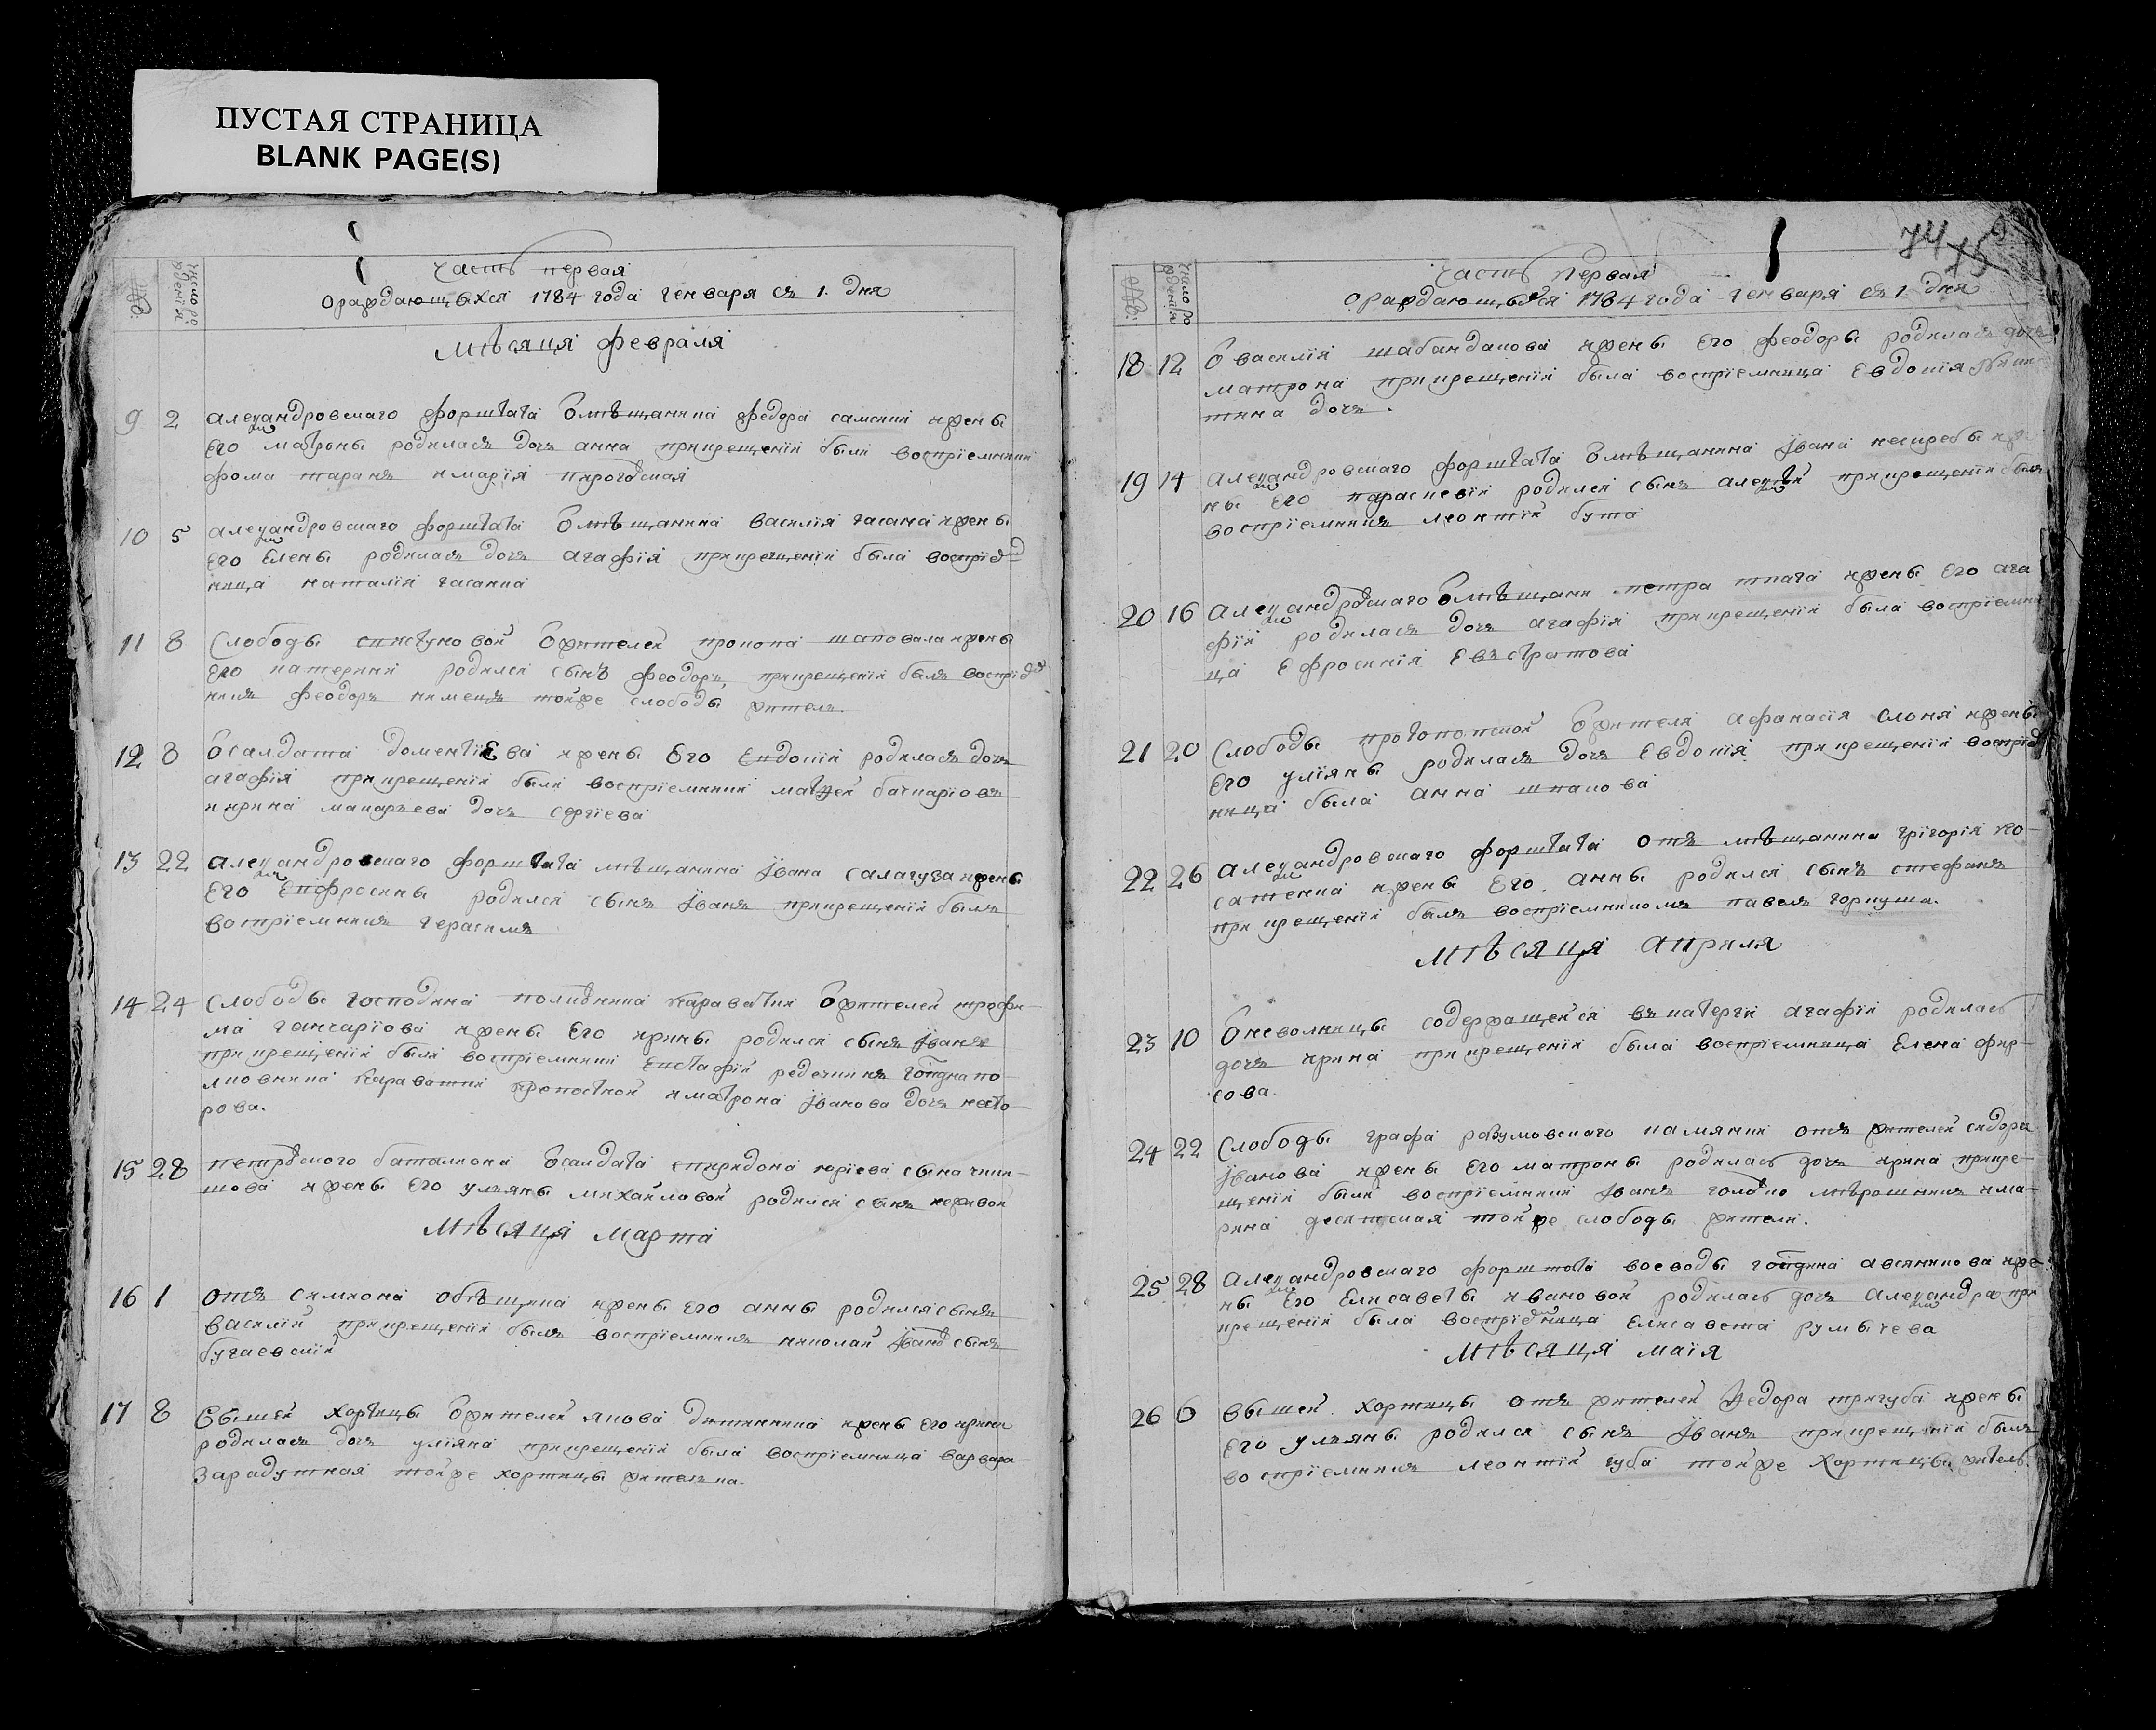 ПУСТАЯ СТРАНИЦА
BLANK PAGE(S)
часть первая
о раждающыхся 1784 года генваря съ 1. дня
число рожденія
мѣсяця февраля
9 2 Александровскаго форштата Ѿ мѣщанина федора и жены
его матроны родилась дочь анна при крещеніи были воспріемники
фома таранъ и марія
10 5 александровскаго форштата Ѿ мѣщанина василія гасана и жены
его Елены родилась дочь агафія при крещеніи была воспріем
ница наталія гасанка
11 8 Слободы Ѿ жителей прокопа шаповала и жены
его катерини родился сынъ феодоръ, при крещеніи былъ воспріем
никъ феодоръ нимецъ той же слободы житель.
12 8 Ѿ салдата доментіЕва и жены Его Евдокіи родилась дочь
агафія при крещеніи были воспріемники матѳей
и ирина макарьева дочь сергіева
13 22 Александровскаго форштата мѣщанина Івана салагуза и жены
Его Епфросины родился сынъ Іванъ при крещеніи былъ
воспріемникъ герасимъ
14 24 Слободы господина полковника Караватки Ѿ жителей трофи-
ма ганчаріова и жены Его ирины родился сынъ Іванъ
при крещеніи были воспріемники Евстафій редечкинъ гопдна по-
лковника Караватки крепостной и матрона Іванова дочь несто-
рова.
15 28 петровского баталиона Ѿ салдата спиридона юріева сына чики-
шова и жены Его ульяны михайловой родился сынъ
мѣсяця марта
16 1 Отъ симиона обѣщика и жены Его анны родился сынъ
василій при крещеніи былъ воспріемникъ николай Іванов сынъ
бугаевскій
17 8 Вышей хортицы Ѿ жителей якова и жены Его ирины
родилась дочь уліяна при крещеніи была воспріемница варвара
зарадутная той же хортицы жителька.
74 75
часть первая
о раждающыхся 1784 года генваря съ 1. дня
число рожденія
18 12 Ѿ василія шабандакова и жены Его феодоры родилась дочь
матрона при крещеніи была воспріемница Евдокія Ники-
тина дочь.
19 14 Александровскаго форштата Ѿ мѣщанина Івана нескребы и же-
ны Его параскевіи родился сынъ алексѣй при крещеніи былъ
воспріемникъ леонтій бута
20 16 Александровскаго Ѿ мѣщани петра ткача и жены Его ага
фіи родилась дочь агафія при крещеніи была воспріемни
ца Ефросинія Евстратова
21 20 Слободы протопопской Ѿ жителя афанасія слоня и жены
Его уліяны родилась дочь Евдокія при крещеніи воспріем
ница была анна шпакова
22 26 Александровскаго форштата отъ мѣщанина григорія ко-
сатенка и жены Его анны родился сынъ стефанъ
при крещеніи былъ воспріемникомъ павелъ горкуша.
мѣсяця априля
23 10 Ѿ неволницы содержащейся въ катерги агафіи родилась
дочь ирина при крещеніи была воспріемница Елена фир-
сова.
24 22 Слободы графа розумовскаго камянки отъ жителей сидора
Іванова и жены Его матроны родилась дочь ирина при кре-
щеніи были воспріемники Іванъ мѣрошникъ и ма-
рина той же слободы жители.
25 28 Александровскаго форштата воеводы гопдина авсяникова и же-
ны Его Елисаветы ивановой родилась дочь александра при
крещеніи была воспріемница Елисавета румычева
мѣсяця маія
26 6 вышей хортицы отъ жителей Ѳедора тригуба и жены
его ульяны родился сынъ Іванъ при крещеніи былъ
воспріемникъ леонтій губа той же хортицы житель